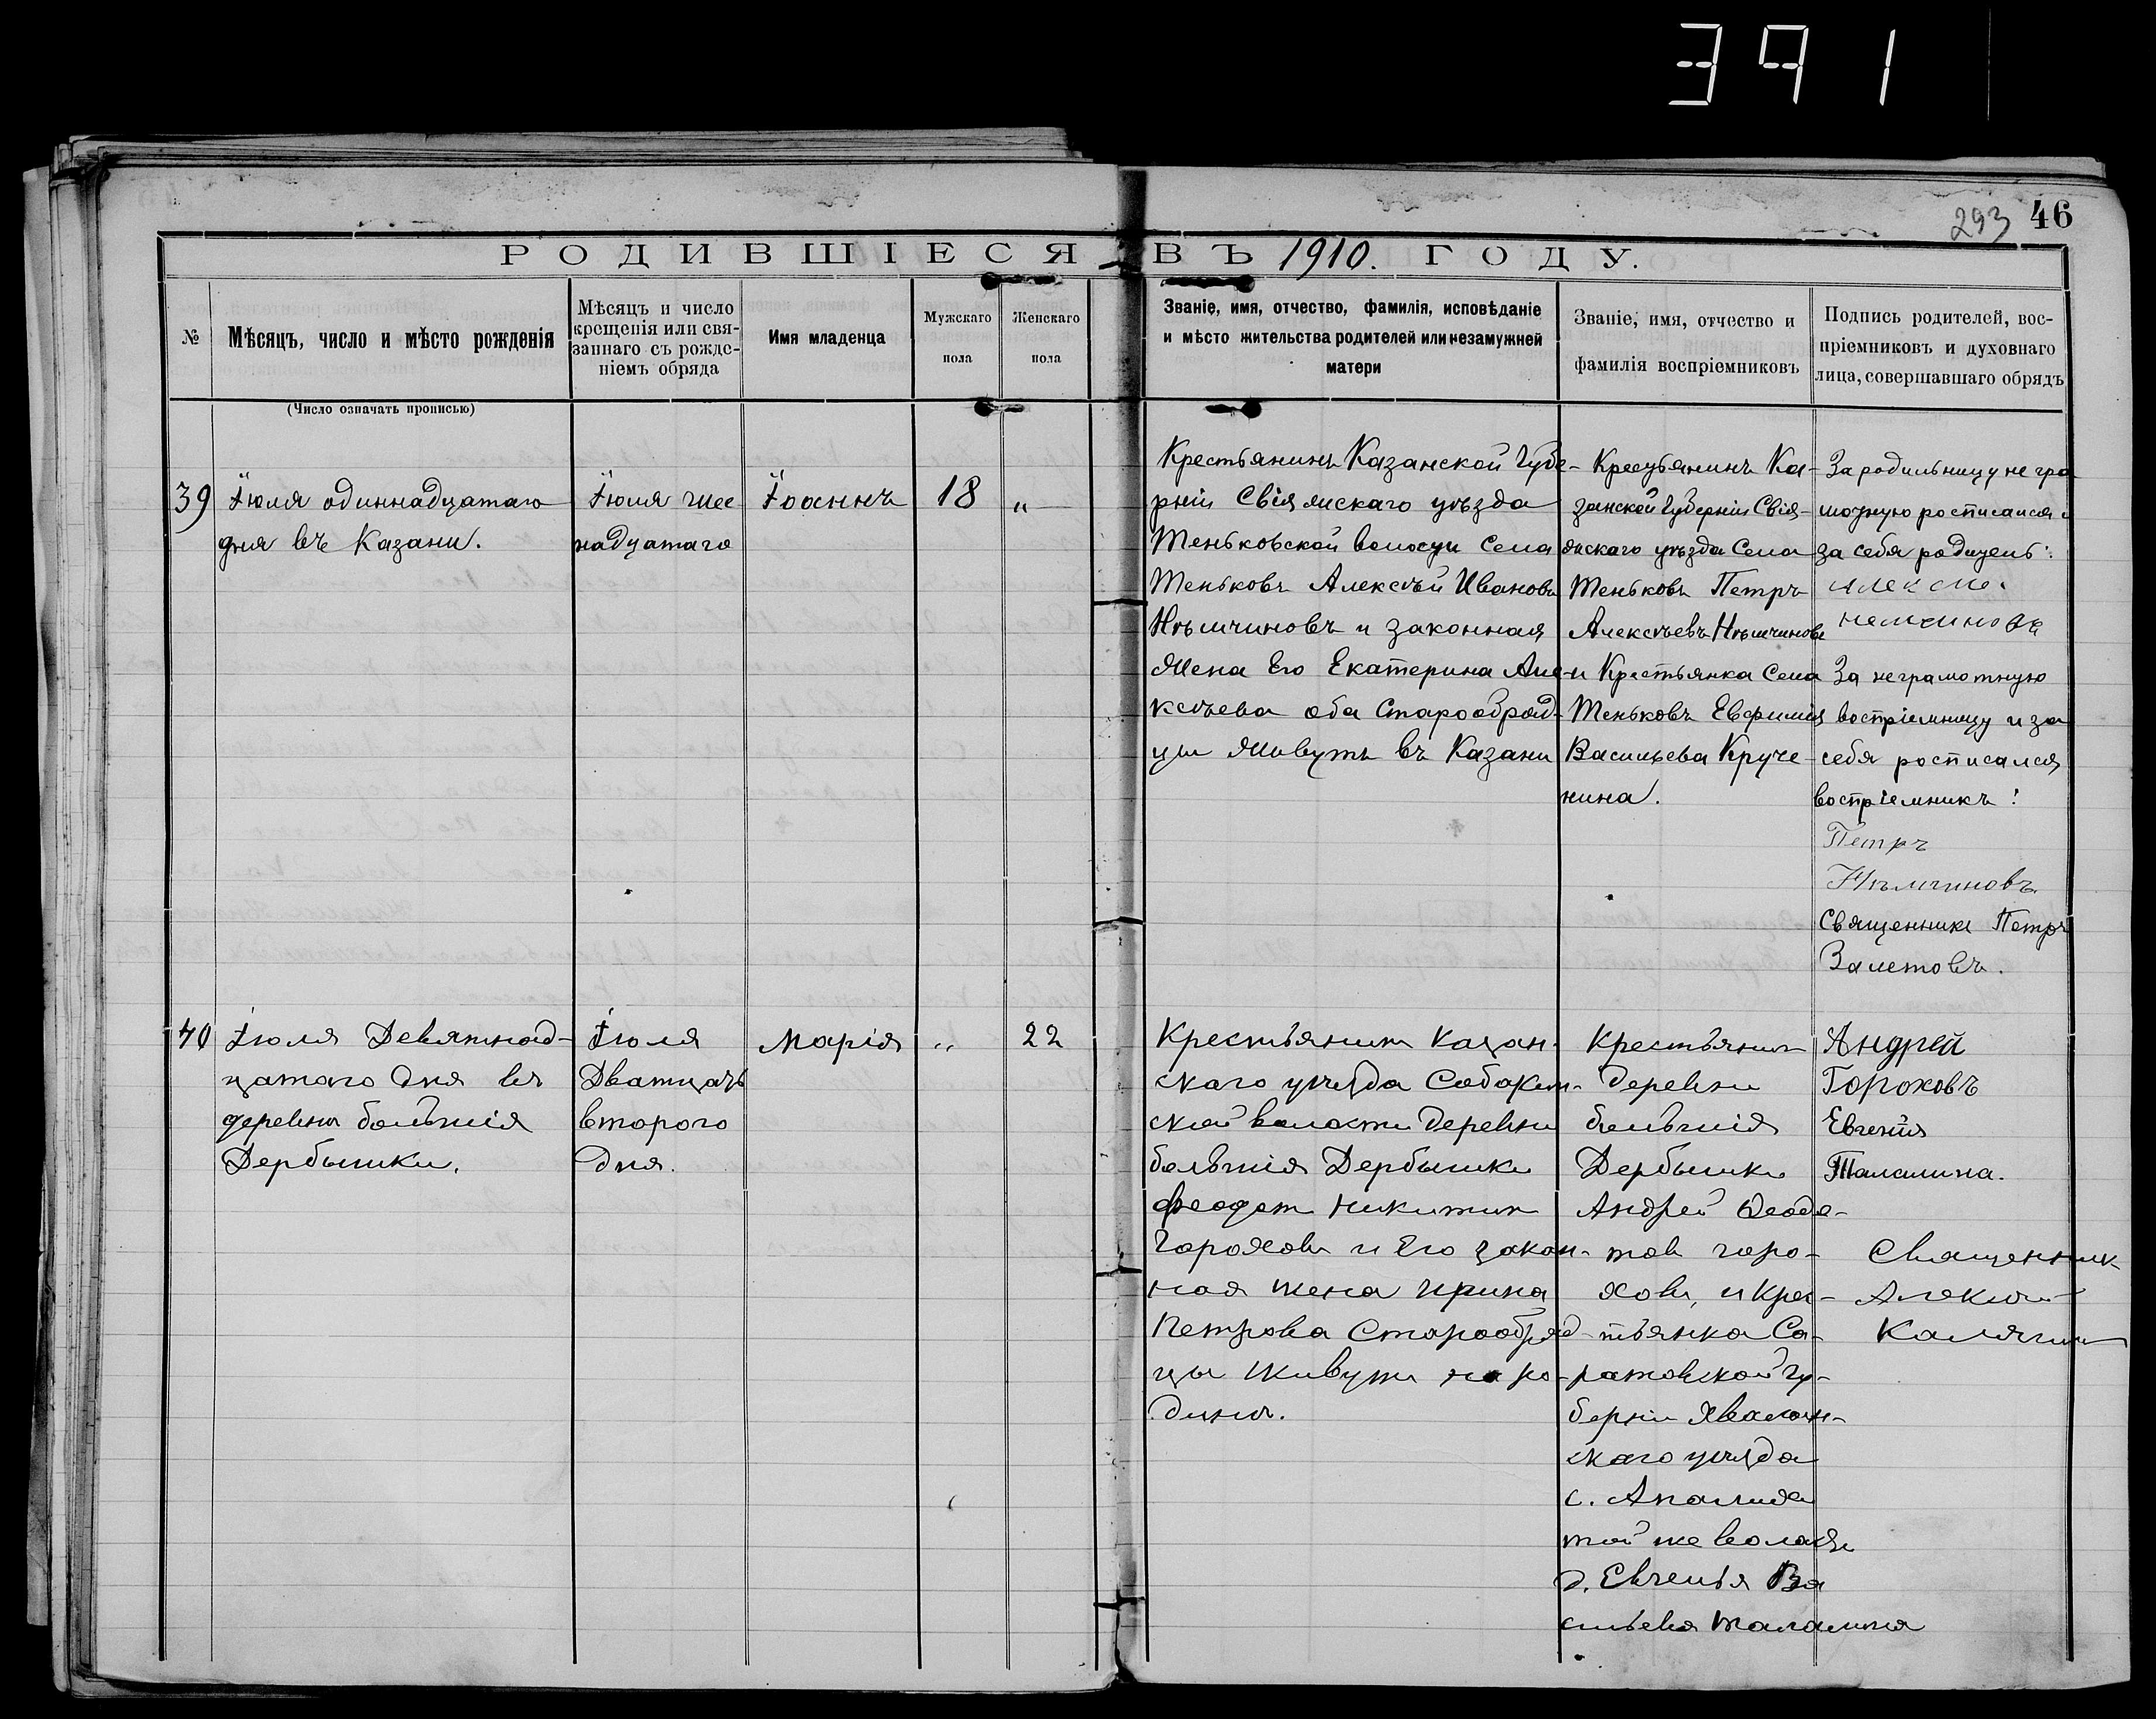 391
293 46
РОДИВШІЕСЯ ВЪ 1910. ГОДУ.
№
Мѣсяцъ, число и мѣсто рожденія
(Число означать прописью)
Мѣсяцъ и число
крещенія или свя-
заннаго съ рожде-
ніемъ обряда
Имя младенца
Мужскаго
пола
Женскаго
пола
Званіе, имя, отчество, фамилія, исповѣданіе
и мѣсто жительства родителей или незамужней
матери
Званіе, имя, отчество и
фамилія воспріемниковъ
Подпись родителей, вос-
пріемниковъ и духовнаго
лица, совершавшаго обрядъ
39
Іюля одиннадцатаго
дня въ Казани.
Іюля шес
надцатаго
Іоаннъ
18
„
Крестьянинъ Казанской Губе-
рніи Свіяжскаго уѣзда
Теньковской волости Села
Теньковъ Алексѣй Ивановъ
Нѣмчиновъ и законная
Жена Его Екатерина Але-
ксѣева оба Старообряд-
цы Живутъ въ Казани
Крестьянинъ Ка-
занской Губерніи Свія-
жскаго уѣзда Села
Теньковъ Петръ
Алексѣевъ Нѣмчиновъ
и Крестьянка Села
Теньковъ Евфимія
Васильева Круче-
нина.
За родильницу не гра
мотную росписался и
за себя родитель:
Алексѣ
немчиновъ
За неграмотную
воспріемницу и за
себя росписался
воспріемникъ:
Петръ
Нѣмчиновъ
Священникъ Петръ
Залетовъ.
40
Іюля Девятнад-
цатаго дня въ
деревни большія
Дербышки.
Іюля
Дватцать
второго
дня.
Марія
„
22
Крестьянинъ Казан-
скаго уѣзда Собакин-
ской волости Деревни
большія Дербышки
Феодот Никитин
Гороховъ и Его закон-
ная жена Ирина
Петрова Старообряд-
цы живутъ на ро-
динѣ.
Крестьянин
деревни
большія
Дербышки
Андрей Феодо-
тов горо-
хов, и Крес-
тьянка Са-
ратовской гу-
берніи Хвалын-
скаго уѣзда
с. Апалиха
той же волости
д. Евгенья Ва
сильева Талалина
Андрей
Гороховъ
Евгенія
Талалина.
Священник
Алексѣй
Калягин